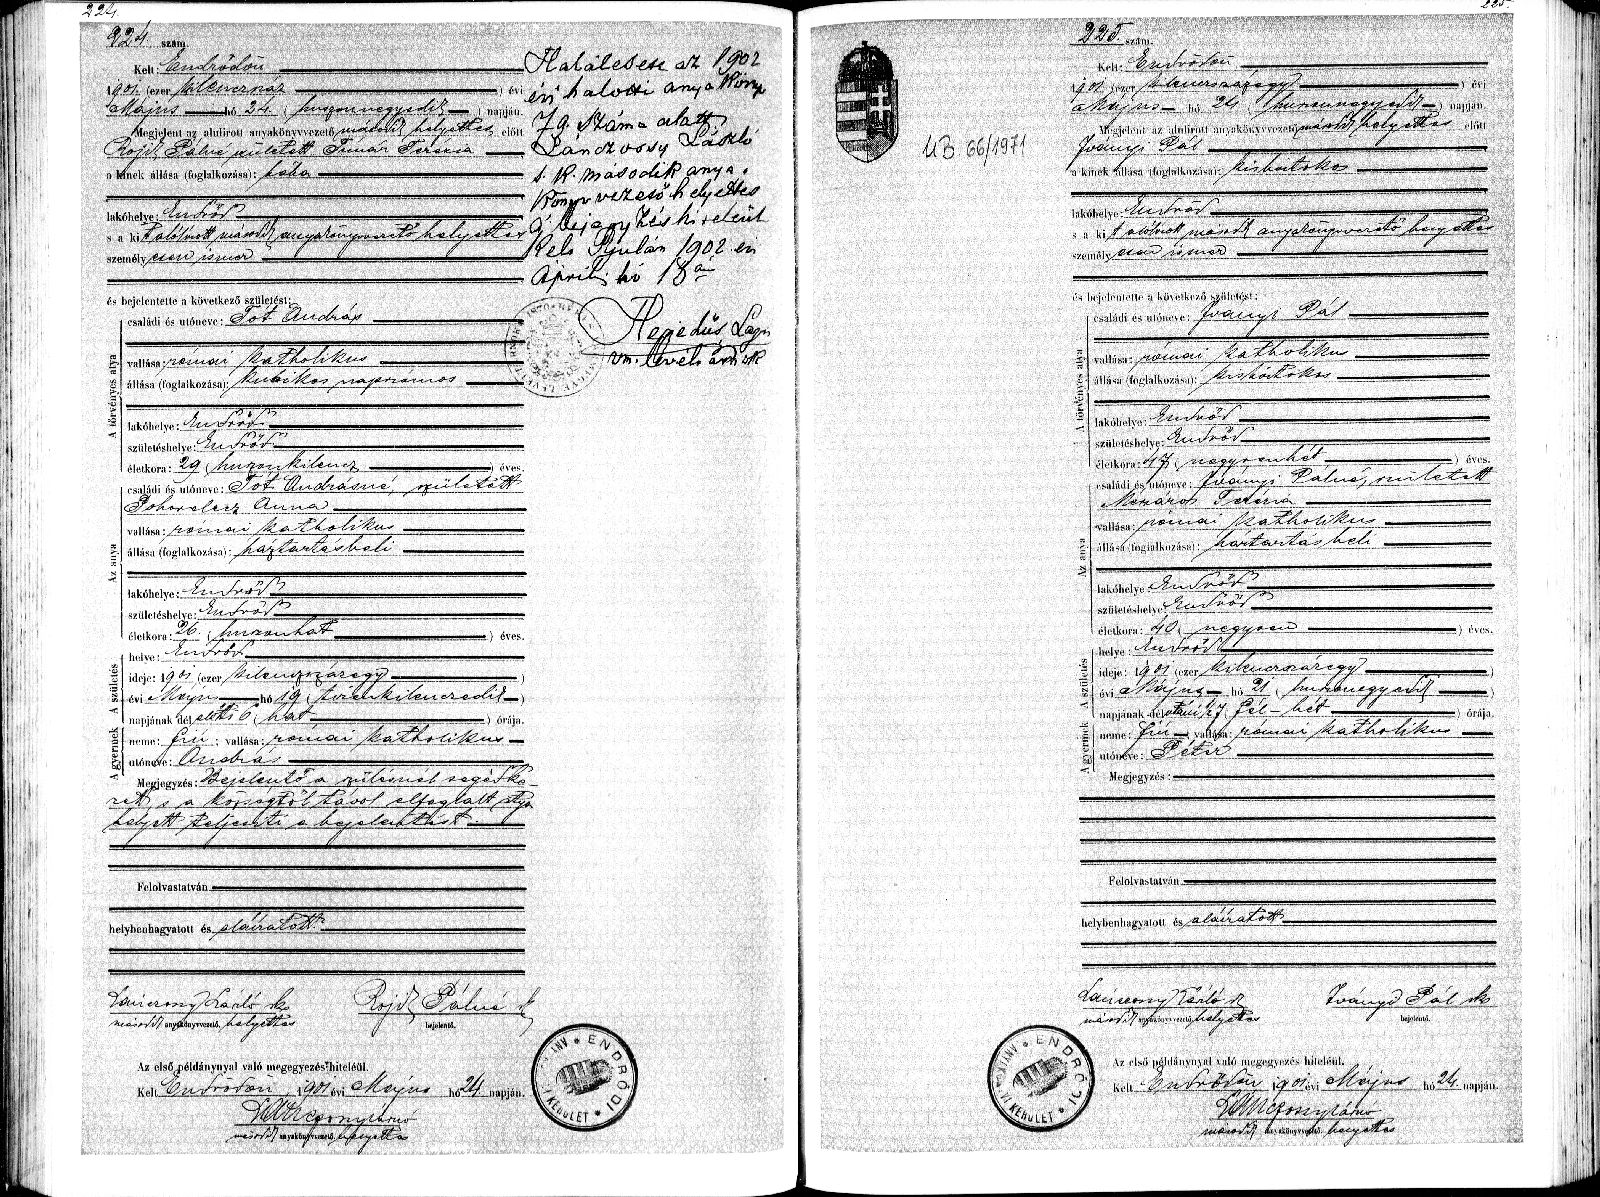 224
224 szám.
Kelt: Endrődön
1901. (ezer kilencszáz ) évi
Május hó 24. ( huszonnegyedik ) napján.
Megjelent az alulírott anyakönyvvezető második helyettes előtt
Rojik Pálné született Timár Terézia
a kinek állása (foglalkozása): bába
lakóhelye: Endrőd
s a kit alólírott második anyakönyvvezető helyettes
személyesen ismer
és bejelentette a következő születést:
A törvényes atya
családi és utóneve: Tót András
vallása: római katholikus
állása (foglalkozása): kubikos napszámos
lakóhelye: Endrőd
születéshelye: Endrőd
életkora: 29 ( huszonkilenc ) éves.
Az anya
családi és utóneve: Tót Andrásné, született
Anna
vallása: római katholikus
állása (foglalkozása): háztartásbeli
lakóhelye: Endrőd
születéshelye: Endrőd
életkora: 26. ( huszonhat ) éves.
A születés
helye: Endrőd
ideje: 1901 (ezer kilencszázegy )
évi Május hó 19 ( tizenkilencedik )
napjának dél előtti 6 ( hat ) órája.
A gyermek
neme: fiú ; vallása: római katholikus
utóneve: András
Megjegyzés: Bejelentő a szülésnél segédke-
zett, s a községtől távol elfoglalt atya
helyett teljesíti a bejelentést.
Felolvastatván
helybenhagyatott és aláíratott.
Lánczsony László sk
második anyakönyvvezető helyettes
Rojik Pálné sk
bejelentő.
Az első példánynyal való megegyezés hiteléül.
Kelt Endrődön 1901 évi Május hó 24 napján.
második anyakönyvvezető, helyettes
ENDRŐDI
KERÜLET
Haláleset az 1902
évi halotti anyakönyv
79. száma alatt
Lánczsony László
s. k. második anya-
könyvvezető helyettes
A bejegyzés hiteléül
Kelt Gyulán 1902 évi
április hó 18án
Hegedűs
vm. levéltárnok
225
225. szám.
MB 66/1971
Kelt: Endrődön
1901. (ezer kilencszázegy ) évi
Május hó 24 ( huszonnegyedik ) napján.
Megjelent az alulírott anyakönyvvezető második helyettes előtt
Iványi Pál
a kinek állása (foglalkozása): kisbirtokos
lakóhelye: Endrőd
s a kit alólírott második anyakönyvvezető helyettes
személyesen ismer
és bejelentette a következő születést:
A törvényes atya
családi és utóneve: Iványi Pál
vallása: római katholikus
állása (foglalkozása): kisbirtokos
lakóhelye: Endrőd
születéshelye: Endrőd
életkora: 47 ( negyvenhét ) éves.
Az anya
családi és utóneve: Iványi Pálné, született
Mészáros Terézia
vallása: római katholikus
állása (foglalkozása): háztartásbeli
lakóhelye: Endrőd
születéshelye: Endrőd
életkora: 40 ( negyven ) éves.
A születés
helye: Endrőd
ideje: 1901 (ezer kilencszázegy )
évi Május hó 21 ( huszonegyedik )
napjának délutáni ½7 ( fél-hét ) órája.
A gyermek
neme: fiú ; vallása: római katholikus
utóneve: Péter
Megjegyzés:
Felolvastatván
helybenhagyatott és aláíratott
Lánczsony László sk
második anyakönyvvezető, helyettes
Iványi Pál sk
bejelentő.
Az első példánynyal való megegyezés hiteléül.
Kelt Endrődön 1901 évi Május hó 24 napján.
második anyakönyvvezető, helyettes
ENDRŐDI
VI KERÜLET